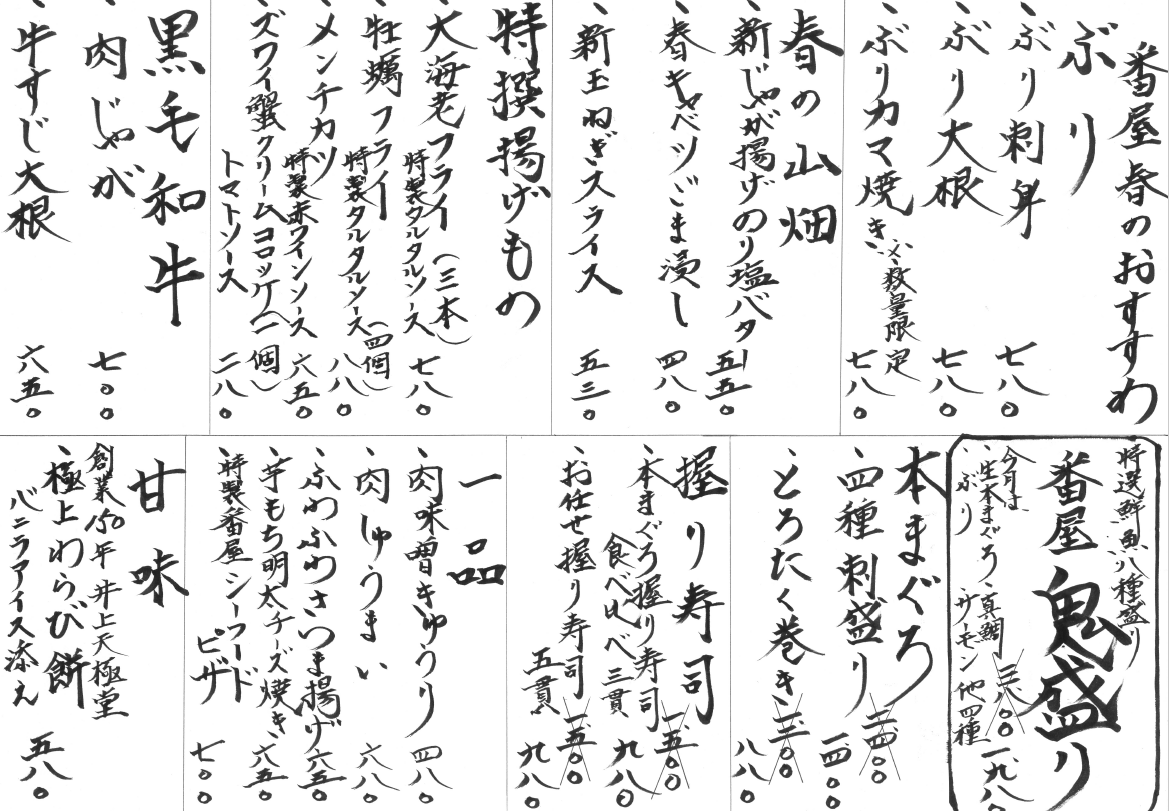 番屋春のおすすめ
ぶり
、ぶり刺身 七八〇
、ぶり大根 七八〇
、ぶりカマ焼き 七八〇
※数量限定
春の山畑
、新じゃが揚げのり塩バター 五五〇
、春キャベツごま浸し 四八〇
、新玉ねぎスライス 五三〇
特撰揚げもの
、大海老フライ(三本) 七八〇
特製タルタルソース
、牡蠣フライ(四個) 八八〇
特製タルタルソース
、メンチカツ 六五〇
特製赤ワインソース
、ズワイ蟹クリームコロッケ(一個) 二八〇
トマトソース
黒毛和牛
、肉じゃが 七〇〇
、牛すじ大根 六五〇
特選鮮魚八種盛り
番屋 鬼盛り
今月は
、生本まぐろ、真鯛
、ぶり サーモン 他四種
一九八〇
本まぐろ
、四種刺盛り 二四〇〇 一四〇〇
、とろたく巻き 一三〇〇 八八〇
握り寿司
、本まぐろ握り寿司 一五〇〇
食べ比べ三貫 九八〇
、お任せ握り寿司 一五〇〇
五貫 九八〇
一品
、肉味噌きゅうり 四八〇
、肉しゅうまい 六八〇
、ふわふわさつま揚げ 六五〇
、芋もち明太チーズ焼き 六五〇
、特製番屋シーフード
ピザ 七〇〇
甘味
創業150年 井上天極堂
、極上わらび餅
バニラアイス添え 五八〇